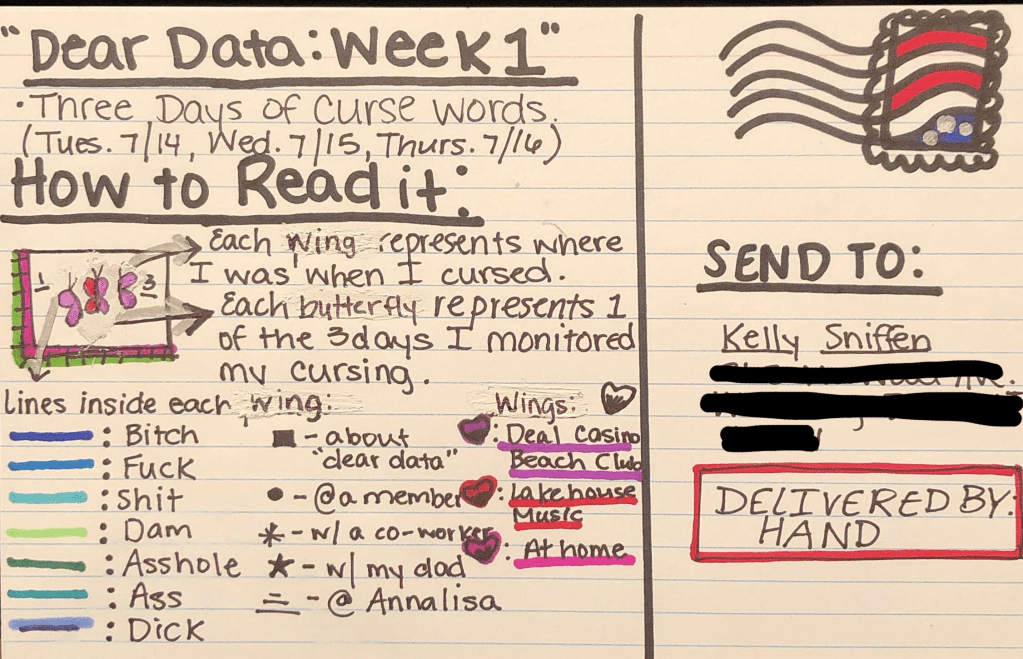 "Dear Data: Week 1"
• Three Days of Curse Words.
(Tues. 7/14, Wed. 7/15, Thurs. 7/16)
How to Read it:
1
3
Each wing represents where
I was when I cursed.
Each butterfly represents 1
of the 3 days I monitored
my cursing.
lines inside each wing:
: Bitch
: Fuck
: Shit
: Dam
: Asshole
: Ass
: Dick
- about
"dear data"
- @ a member
- w/ a co-worker
- w/ my dad
- @ Annalisa
Wings:
: Deal Casino
Beach Club
: Lakehouse
Music
: At home
SEND TO:
Kelly Sniffen
DELIVERED BY:
HAND